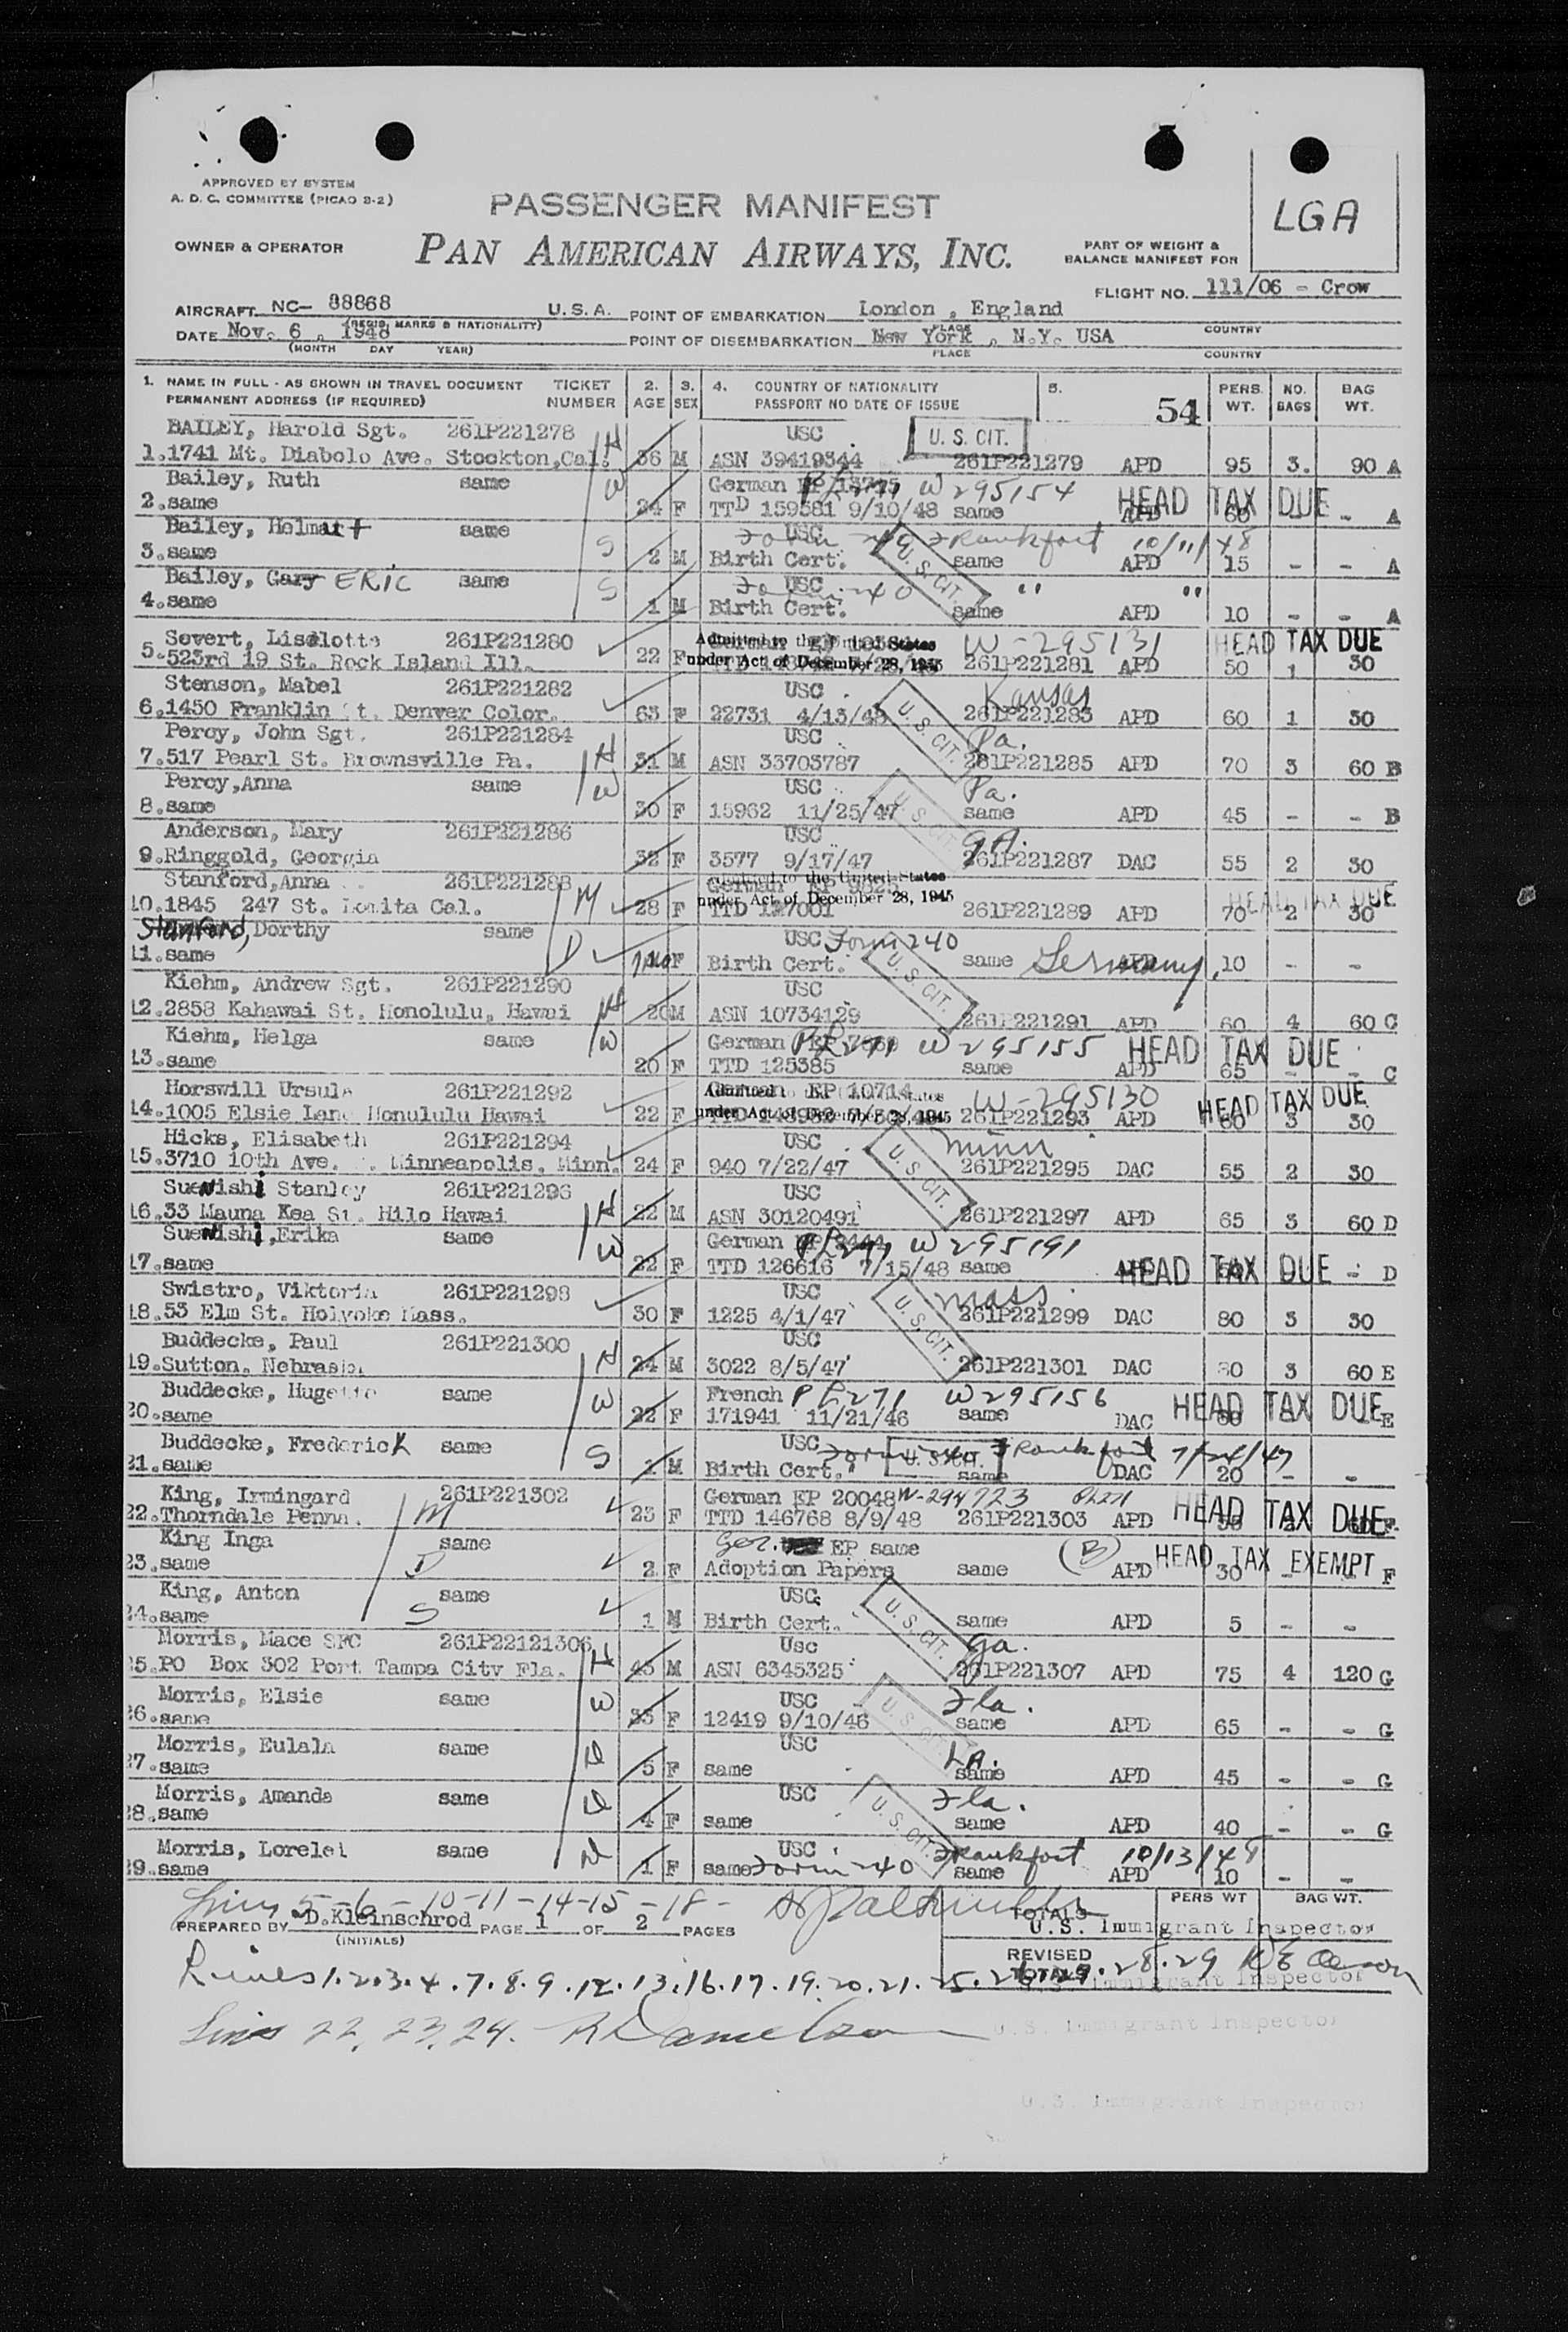 APPROVED BY SYSTEM
A. D. C. COMMITTEE (PICAO S-2)
PASSENGER MANIFEST
LGA
OWNER & OPERATOR
PAN AMERICAN AIRWAYS, INC.
PART OF WEIGHT &
BALANCE MANIFEST FOR
FLIGHT NO. 111/06 - Crow
AIRCRAFT NC- 88868 U.S.A. POINT OF EMBARKATION London , England
(REGIS. MARKS & NATIONALITY) PLACE COUNTRY
DATE Nov. 6 , 1948 POINT OF DISEMBARKATION New York , N.Y. USA
(MONTH DAY YEAR) PLACE COUNTRY
1. NAME IN FULL - AS SHOWN IN TRAVEL DOCUMENT TICKET 2. 3. 4. COUNTRY OF NATIONALITY 5. PERS. NO. BAG
PERMANENT ADDRESS (IF REQUIRED) NUMBER AGE SEX PASSPORT NO DATE OF ISSUE 54 WT. BAGS WT.
BAILEY, Harold Sgt. 261P221278 H USC U. S. CIT.
1. 1741 Mt. Diabolo Ave. Stockton, Cal. 36 M ASN 39419344 261P221279 APD 95 3. 90 A
Bailey, Ruth same W German W 295154 HEAD TAX DUE
2. same 24 F TTD 159581 9/10/48 same APD 60 - - A
Bailey, Helmut same USC Frankfort 10/11/48
3. same S 2 M Birth Cert. U. S. CIT. same APD 15 - - A
Bailey, Gary ERIC same USC Form 240 " "
4. same S 1 M Birth Cert. same APD 10 - - A
Sovert, Liselotte 261P221280 Admitted to the United States W-295131 HEAD TAX DUE
5. 523rd 19 St. Rock Island Ill. 22 F under Act of December 28, 1945 261P221281 APD 50 1 30
Stenson, Mabel 261P221282 USC Kansas
6. 1450 Franklin St. Denver Color. 63 F 22731 4/13/48 U. S. CIT. 261P221283 APD 60 1 30
Percy, John Sgt. 261P221284 H USC Pa.
7. 517 Pearl St. Brownsville Pa. 31 M ASN 33703787 261P221285 APD 70 3 60 B
Percy, Anna same W USC Pa.
8. same 30 F 15962 11/25/47 U. S. CIT. same APD 45 - - B
Anderson, Mary 261P221286 USC GA.
9. Ringgold, Georgia 32 F 3577 9/17/47 261P221287 DAC 55 2 30
Stanford, Anna 261P221288 M German EP to the United States HEAD TAX DUE
10. 1845 247 St. Lomita Cal. 28 F TTD 127001 under Act of December 28, 1945 261P221289 APD 70 2 30
Stanford, Dorthy same USC Form 240
11. same D F Birth Cert. U. S. CIT. same Germany. 10 - -
Kiehm, Andrew Sgt. 261P221290 H USC
12. 2858 Kahawai St. Honolulu, Hawai 20 M ASN 10734129 261P221291 APD 60 4 60 C
Kiehm, Helga same W German W 295155 HEAD TAX DUE
13. same 20 F TTD 125385 same APD 65 - - C
Horswill Ursula 261P221292 German EP 10714 W-295130 HEAD TAX DUE
14. 1005 Elsie Lane Honululu Hawai 22 F under Act of December 28, 1945 261P221293 APD 60 3 30
Hicks, Elisabeth 261P221294 USC Minn
15. 3710 10th Ave. Minneapolis, Minn. 24 F 940 7/22/47 U. S. CIT. 261P221295 DAC 55 2 30
Suenishi Stanley 261P221296 H USC
16. 33 Mauna Kea St. Hilo Hawai 22 M ASN 30120491 261P221297 APD 65 3 60 D
Suenishi, Erika same W German W 295191
17. same 22 F TTD 126616 7/15/48 same HEAD TAX DUE - D
Swistro, Viktoria 261P221298 USC mass.
18. 53 Elm St. Holyoke Mass. 30 F 1225 4/1/47 U. S. CIT. 261P221299 DAC 80 3 30
Buddecke, Paul 261P221300 H USC
19. Sutton, Nebraska 24 M 3022 8/5/47 261P221301 DAC 80 3 60 E
Buddecke, Hugette same W French PL 271 W 295156 HEAD TAX DUE
20. same 22 F 171941 11/21/46 same DAC E
Buddecke, Frederick same USC Form 240 Frankfort 7/24/47
21. same S 1 M Birth Cert. U. S. CIT. same DAC 20 - -
King, Irmingard 261P221302 M German EP 20048 W-294723 PL271 HEAD TAX DUE
22. Thorndale Penna. 23 F TTD 146768 8/9/48 261P221303 APD F
King Inga same Ger. EP same (B) HEAD TAX EXEMPT
23. same D 2 F Adoption Papers same APD 30 - - F
King, Anton same USC
24. same S 1 M Birth Cert. U. S. CIT. same APD 5 - -
Morris, Mace SFC 261P22121306 H Usc Ga.
25. PO Box 302 Port Tampa City Fla. 43 M ASN 6345325 261P221307 APD 75 4 120 G
Morris, Elsie same W USC Fla.
26. same 33 F 12419 9/10/46 U. S. CIT. same APD 65 - - G
Morris, Eulala same D USC LA.
27. same 5 F same same APD 45 - - G
Morris, Amanda same D USC Fla.
28. same 4 F same U. S. CIT. same APD 40 - - G
Morris, Lorelei same D USC Frankfort 10/13/48
29. same 1 F same Form 240 same APD 10 - -
Lines 5-6-10-11-14-15-18-
PREPARED BY D.Kleinschrod PAGE 1 OF 2 PAGES
(INITIALS)
PERS WT BAG WT.
TOTALS
U. S. Immigrant Inspector
REVISED
TOTALS
Lines 1.2.3.4.7.8.9.12.13.16.17.19.20.21.25.26.27.28.29
U. S. Immigrant Inspector
Lines 22, 23, 24.
U. S. Immigrant Inspector
U. S. Immigrant Inspector